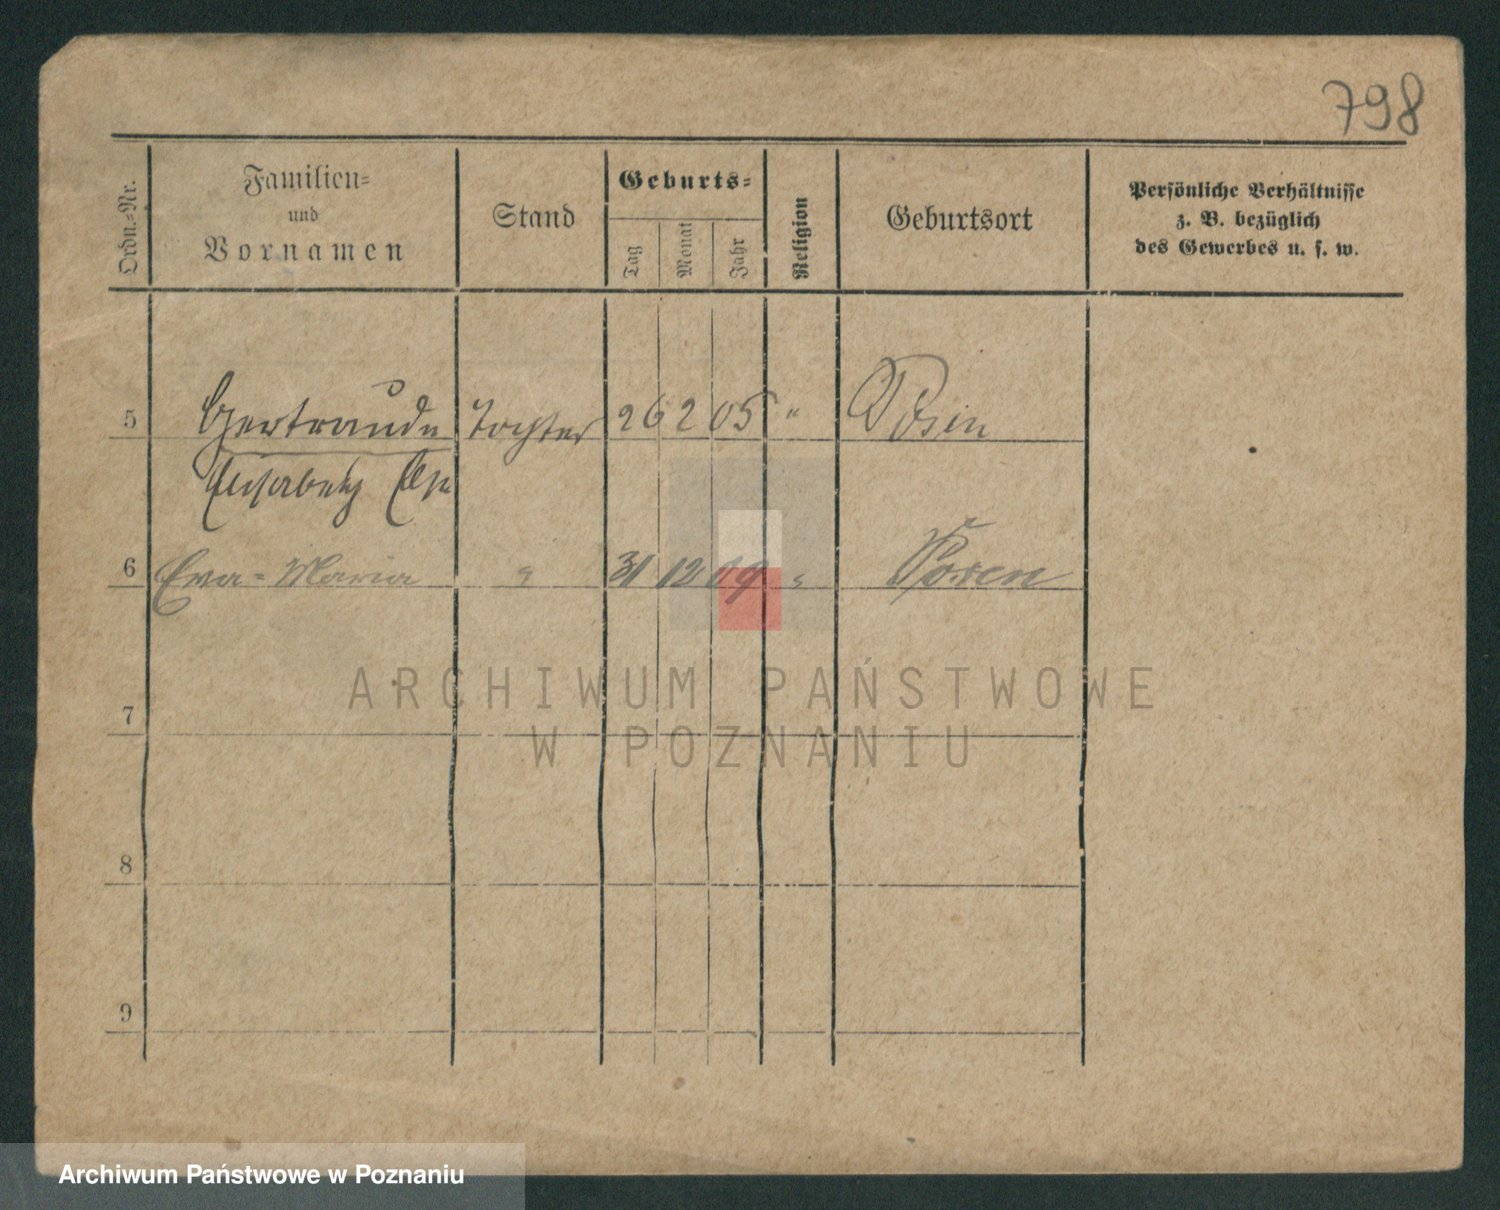 798
Ordn.-Nr.
Familien-
und
Vornamen
Stand
Geburts-
Tag
Monat
Jahr
Religion
Geburtsort
Persönliche Verhältnisse
z. B. bezüglich
des Gewerbes u. s. w.
5 Gertraude Tochter 26 2 05 "
Elisabeth
6 Eva-Maria " 31 12 09 " Posen
ARCHIWUM PAŃSTWOWE
W POZNANIU
7
8
9
Archiwum Państwowe w Poznaniu